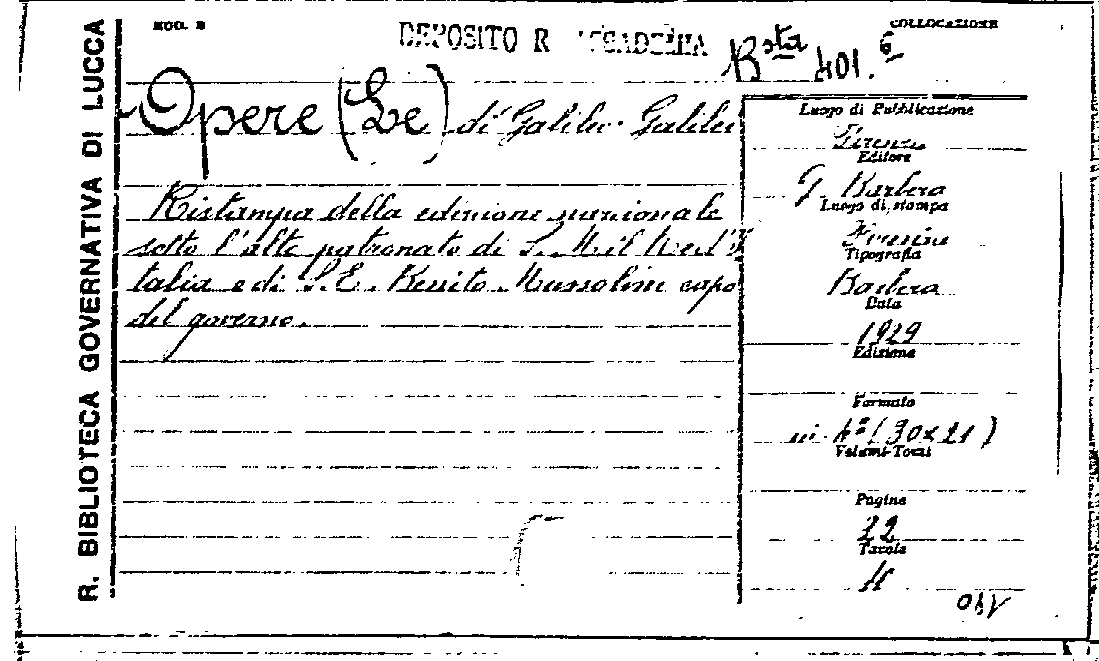 R. BIBLIOTECA GOVERNATIVA DI LUCCA
MOD. B
DEPOSITO R
COLLOCAZIONE
Bsta 401.6
Opere (Le) di Galileo Galilei
Ristampa della edizione nazionale
sotto l'alto patronato di S. M. il Re d'I
talia e di S. E. Benito Mussolini capo
del governo.
Luogo di Pubblicazione
Firenze
Editore
G. Barbera
Luogo di stampa
Firenze
Tipografia
Barbera
Data
1929
Edizione
Formato
in 4º (30x21)
Volumi-Tomi
Pagine
22
Tavole